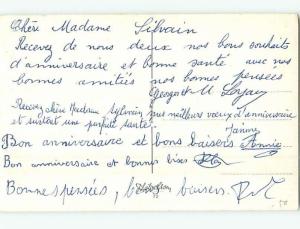 Chère Madame Silvain
Recevez de nous deux nos bons souhaits
d'anniversaire et bonne santé avec nos
bonnes amitiés nos bonnes pensées
Georges et M
Recevez chère Madame Sylvain mes meilleurs vœux d'anniversaire
et surtout une parfaite santé. Janine
Bon anniversaire et bons baisers Annie
Bon anniversaire et bonnes bises
Bonnes pensées, baisers.